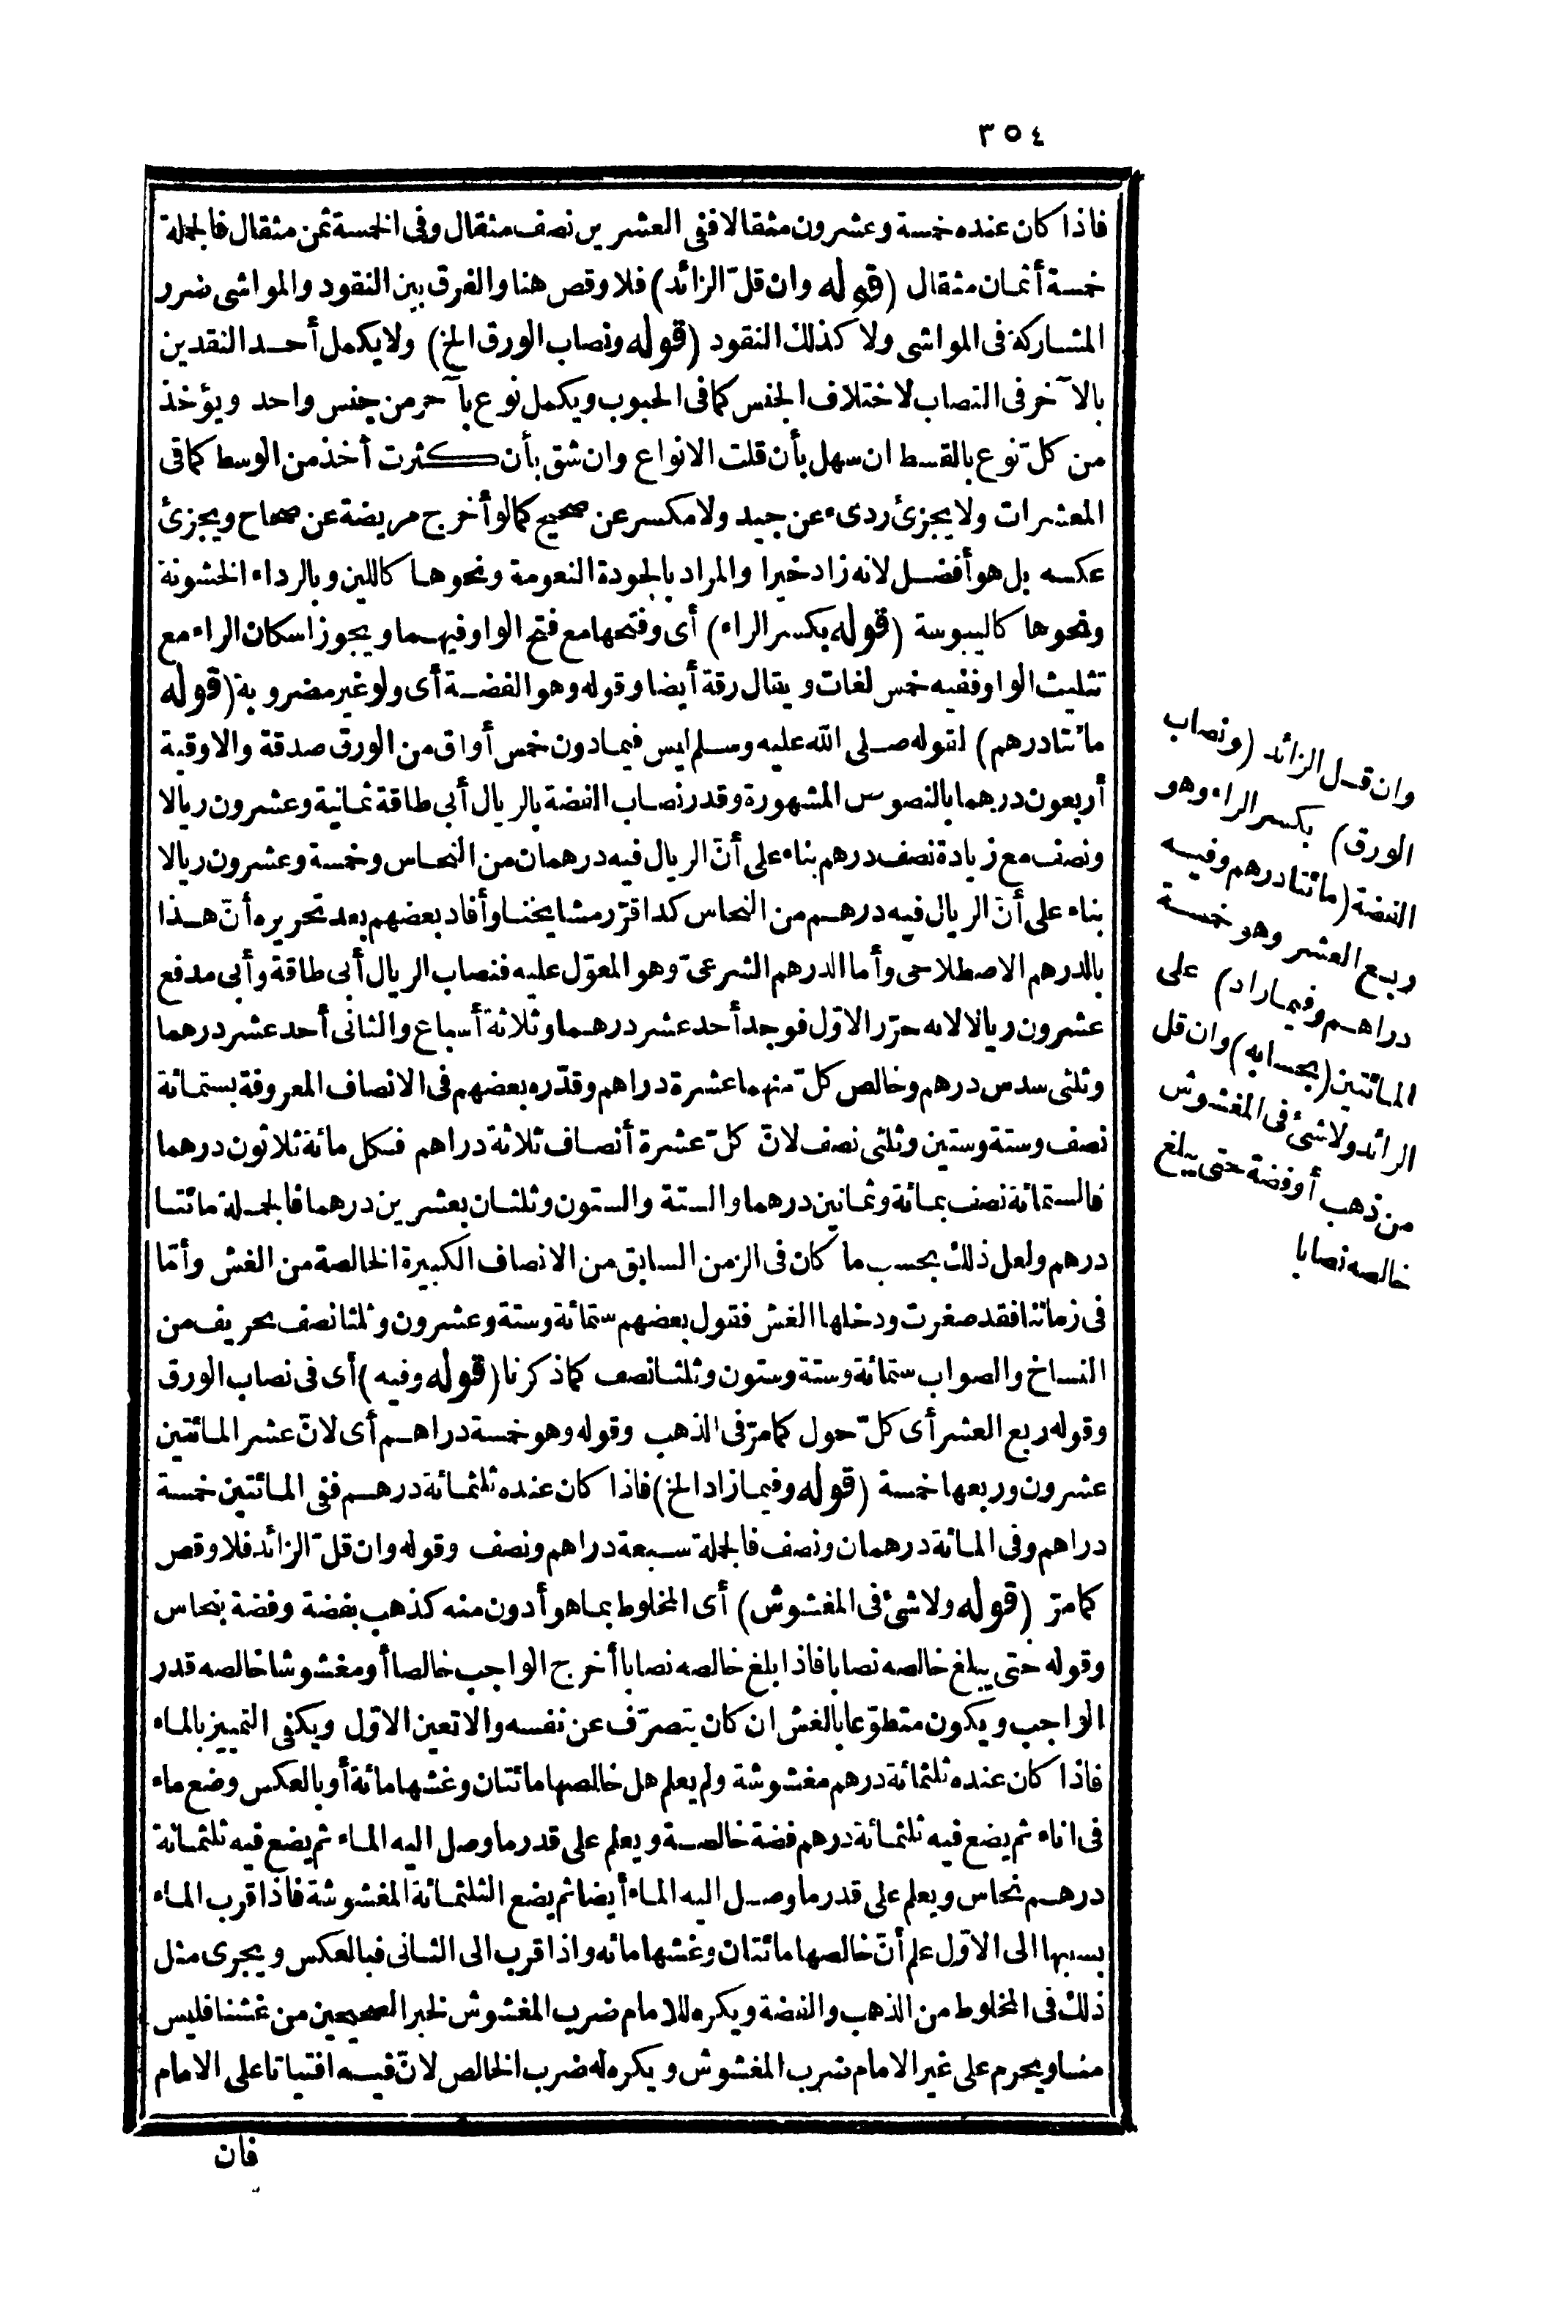 ٣٥٤
فاذا كان عنده خمسة وعشرون مثقالا ففى العشرين نصف مثقال وفى الخمسة ثمن مثقال فالجملة
خمسة أثمان مثقال (قوله وان قلّ الزائد) فلا وقص هنا والفرق بين النقود والمواشى ضرر
المشاركة فى المواشى ولا كذلك النقود (قوله ونصاب الورق الخ) ولا يكمل أحد النقدين
بالآخر فى النصاب لاختلاف الجنس كما فى الحبوب ويكمل نوع بآخر من جنس واحد ويؤخذ
من كلّ نوع بالقسط ان سهل بأن قلت الانواع وان شق بأن كثرت أخذ من الوسط كما فى
المعشرات ولا يجزئ ردىء عن جيد ولا مكسر عن صحيح كما لو أخرج مريضة عن صحاح ويجزئ
عكسه بل هو أفضل لانه زاد خيرا والمراد بالجودة النعومة ونحوها كاللين وبالرداءة الخشونة
ونحوها كاليبوسة (قوله بكسر الراء) أى وفتحها مع فتح الواو فيهما ويجوز اسكان الراء مع
تثليث الواو ففيه خمس لغات ويقال رقة أيضا وقوله وهو الفضة أى ولو غير مضروبة (قوله
مائتا درهم) لقوله صلى الله عليه وسلم ليس فيما دون خمس أواق من الورق صدقة والاوقية
أربعون درهما بالنصوص المشهورة وقدر نصاب الفضة بالريال أبى طاقة ثمانية وعشرون ريالا
ونصف مع زيادة نصف درهم بناء على أنّ الريال فيه درهمان من النحاس وخمسة وعشرون ريالا
بناء على أنّ الريال فيه درهم من النحاس كذا قرّر مشايخنا وأفاد بعضهم بعد تحريره أنّ هذا
بالدرهم الاصطلاحى وأما الدرهم الشرعىّ وهو المعوّل عليه فنصاب الريال أبى طاقة وأبى مدفع
عشرون ريالا لانه حرّر الاوّل فوجد أحد عشر درهما وثلاثة أسباع والثانى أحد عشر درهما
وثلثى سدس درهم وخالص كلّ منهما عشرة دراهم وقدّره بعضهم فى الانصاف المعروفة بستمائة
نصف وستة وستين وثلثى نصف لانّ كلّ عشرة أنصاف ثلاثة دراهم فكل مائة ثلاثون درهما
فالستمائة نصف بمائة وثمانين درهما والستة والستون وثلثان بعشرين درهما فالجملة مائتا
درهم ولعل ذلك بحسب ما كان فى الزمن السابق من الانصاف الكبيرة الخالصة من الغش وأمّا
فى زماننا فقد صغرت ودخلها الغش فقول بعضهم ستمائة وستة وعشرون وثلثا نصف تحريف من
النساخ والصواب ستمائة وستة وستون وثلثا نصف كما ذكرنا (قوله وفيه) أى فى نصاب الورق
وقوله ربع العشر أى كلّ حول كما مرّ فى الذهب وقوله وهو خمسة دراهم أى لانّ عشر المائتين
عشرون وربعها خمسة (قوله وفيما زاد الخ) فاذا كان عنده ثلثمائة درهم ففى المائتين خمسة
دراهم وفى المائة درهمان ونصف فالجملة سبعة دراهم ونصف وقوله وان قلّ الزائد فلا وقص
كما مرّ (قوله ولا شئ فى المغشوش) أى المخلوط بما هو أدون منه كذهب بفضة وفضة بنحاس
وقوله حتى يبلغ خالصه نصابا فاذا بلغ خالصه نصابا أخرج الواجب خالصا أو مغشوشا خالصه قدر
الواجب ويكون متطوّعا بالغش ان كان يتصرّف عن نفسه والا تعين الاوّل ويكفى التمييز بالماء
فاذا كان عنده ثلثمائة درهم مغشوشة ولم يعلم هل خالصها مائتان وغشها مائة أو بالعكس وضع ماء
فى اناء ثم يضع فيه ثلثمائة درهم فضة خالصة ويعلم على قدر ما وصل اليه الماء ثم يضع فيه ثلثمائة
درهم نحاس ويعلم على قدر ما وصل اليه الماء أيضا ثم يضع الثلثمائة المغشوشة فاذا قرب الماء
بسببها الى الاوّل علم أنّ خالصها مائتان وغشها مائه واذا قرب الى الثانى فبالعكس ويجرى مثل
ذلك فى المخلوط من الذهب والفضة ويكره للامام ضرب المغشوش لخبر الصحيحين من غشنا فليس
منا ويحرم على غير الامام ضرب المغشوش ويكره له ضرب الخالص لانّ فيه افتياتا على الامام
فان
وان قل الزائد (ونصاب
الورق) بكسر الراء وهو
الفضة (مائتا درهم وفيه
ربع العشر وهو خمسة
دراهم وفيما زاد) على
المائتين (بحسابه) وان قل
الزائد ولا شئ فى المغشوش
من ذهب أو فضة حتى يبلغ
خالصه نصابا